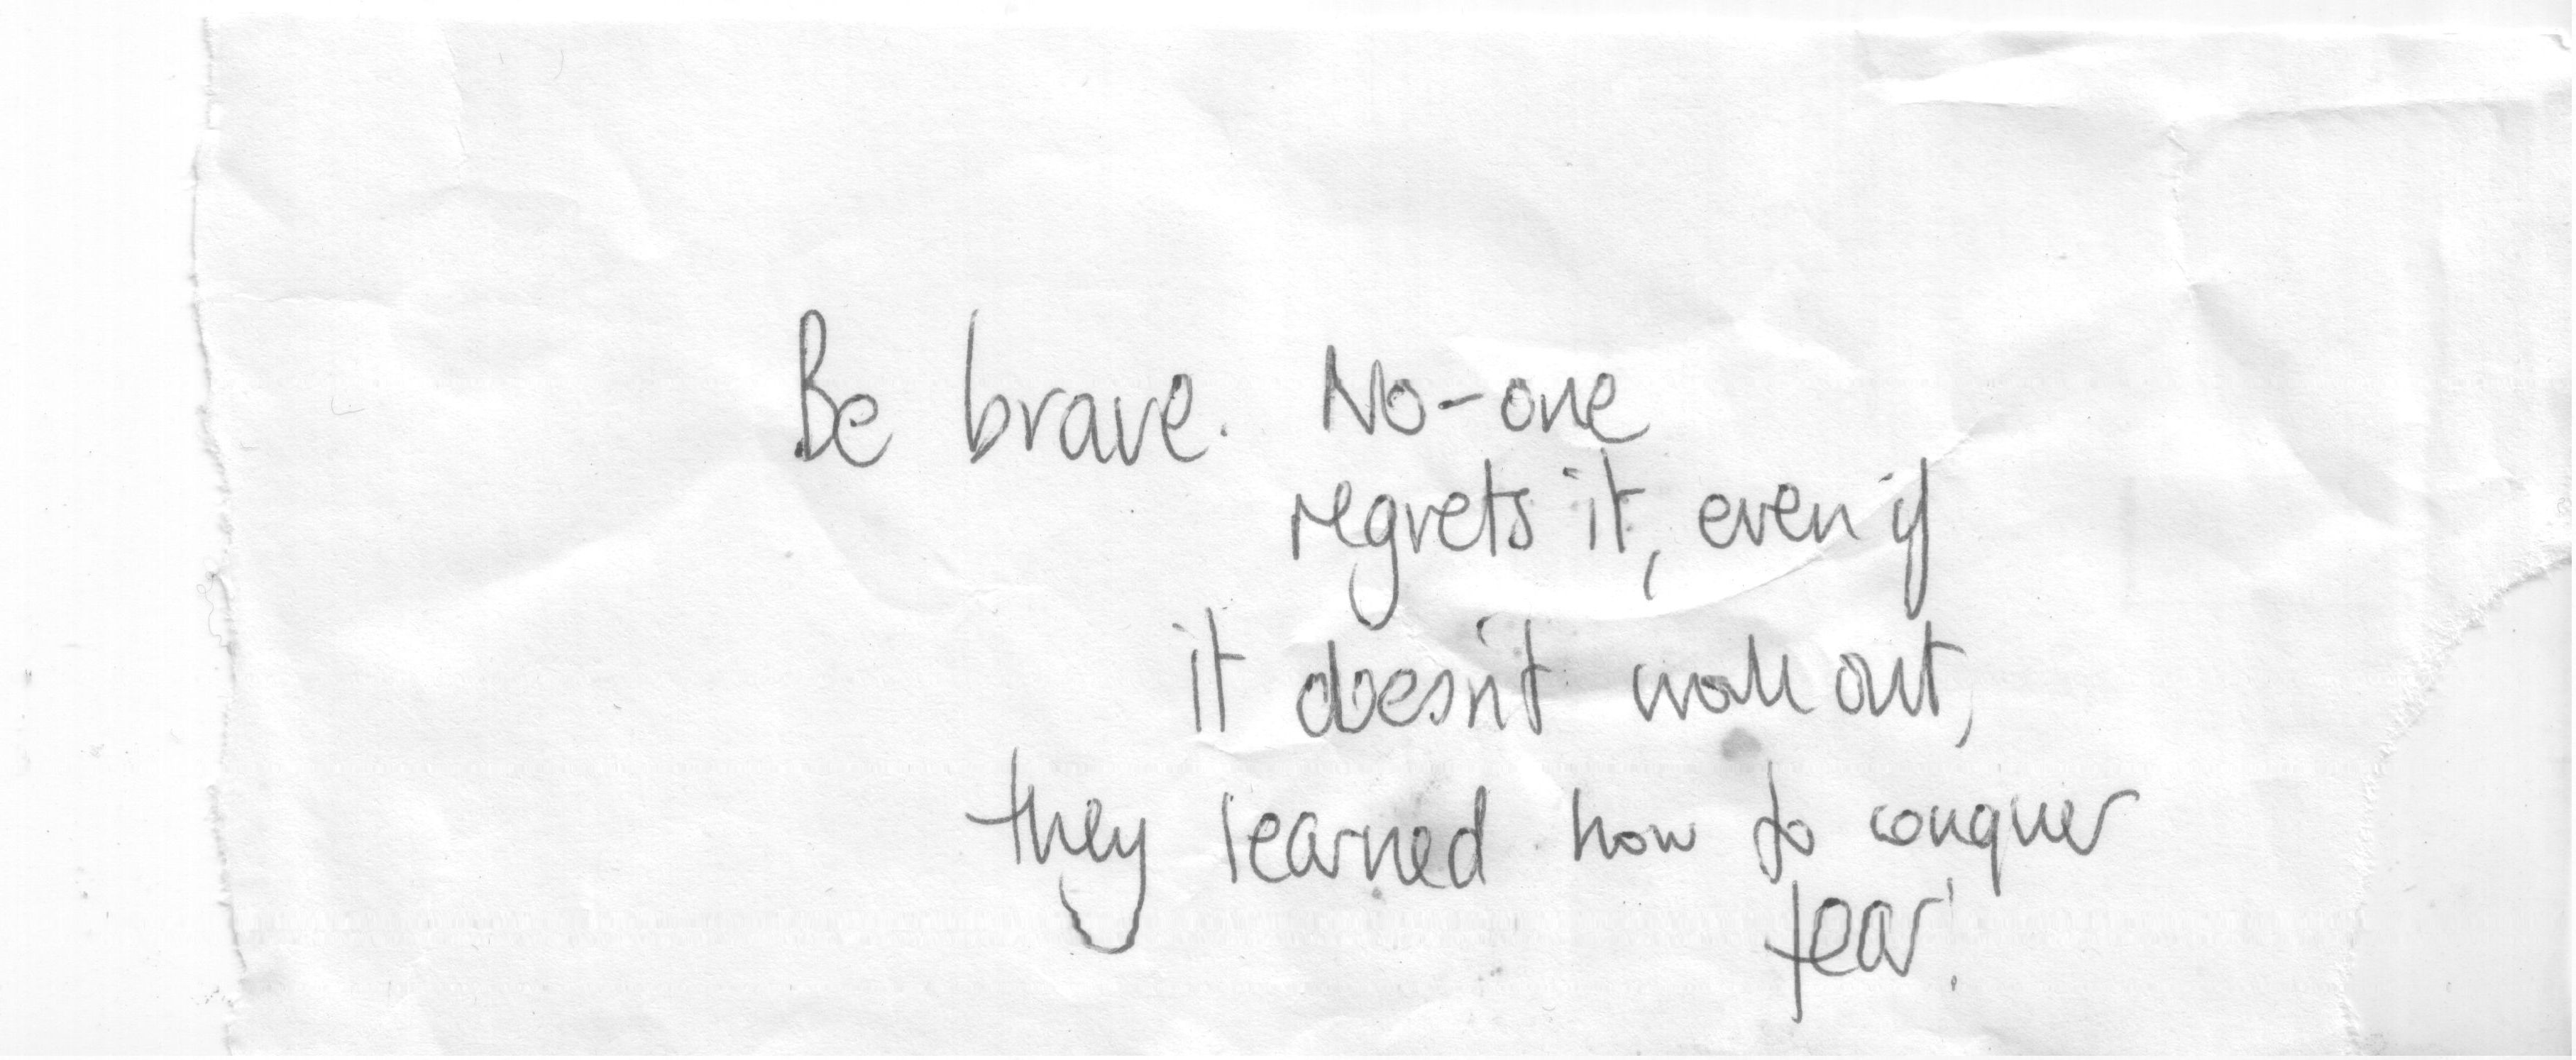 Be brave. No-one
regrets it, even if
it doesn't work out,
they learned how to conquer
fear!